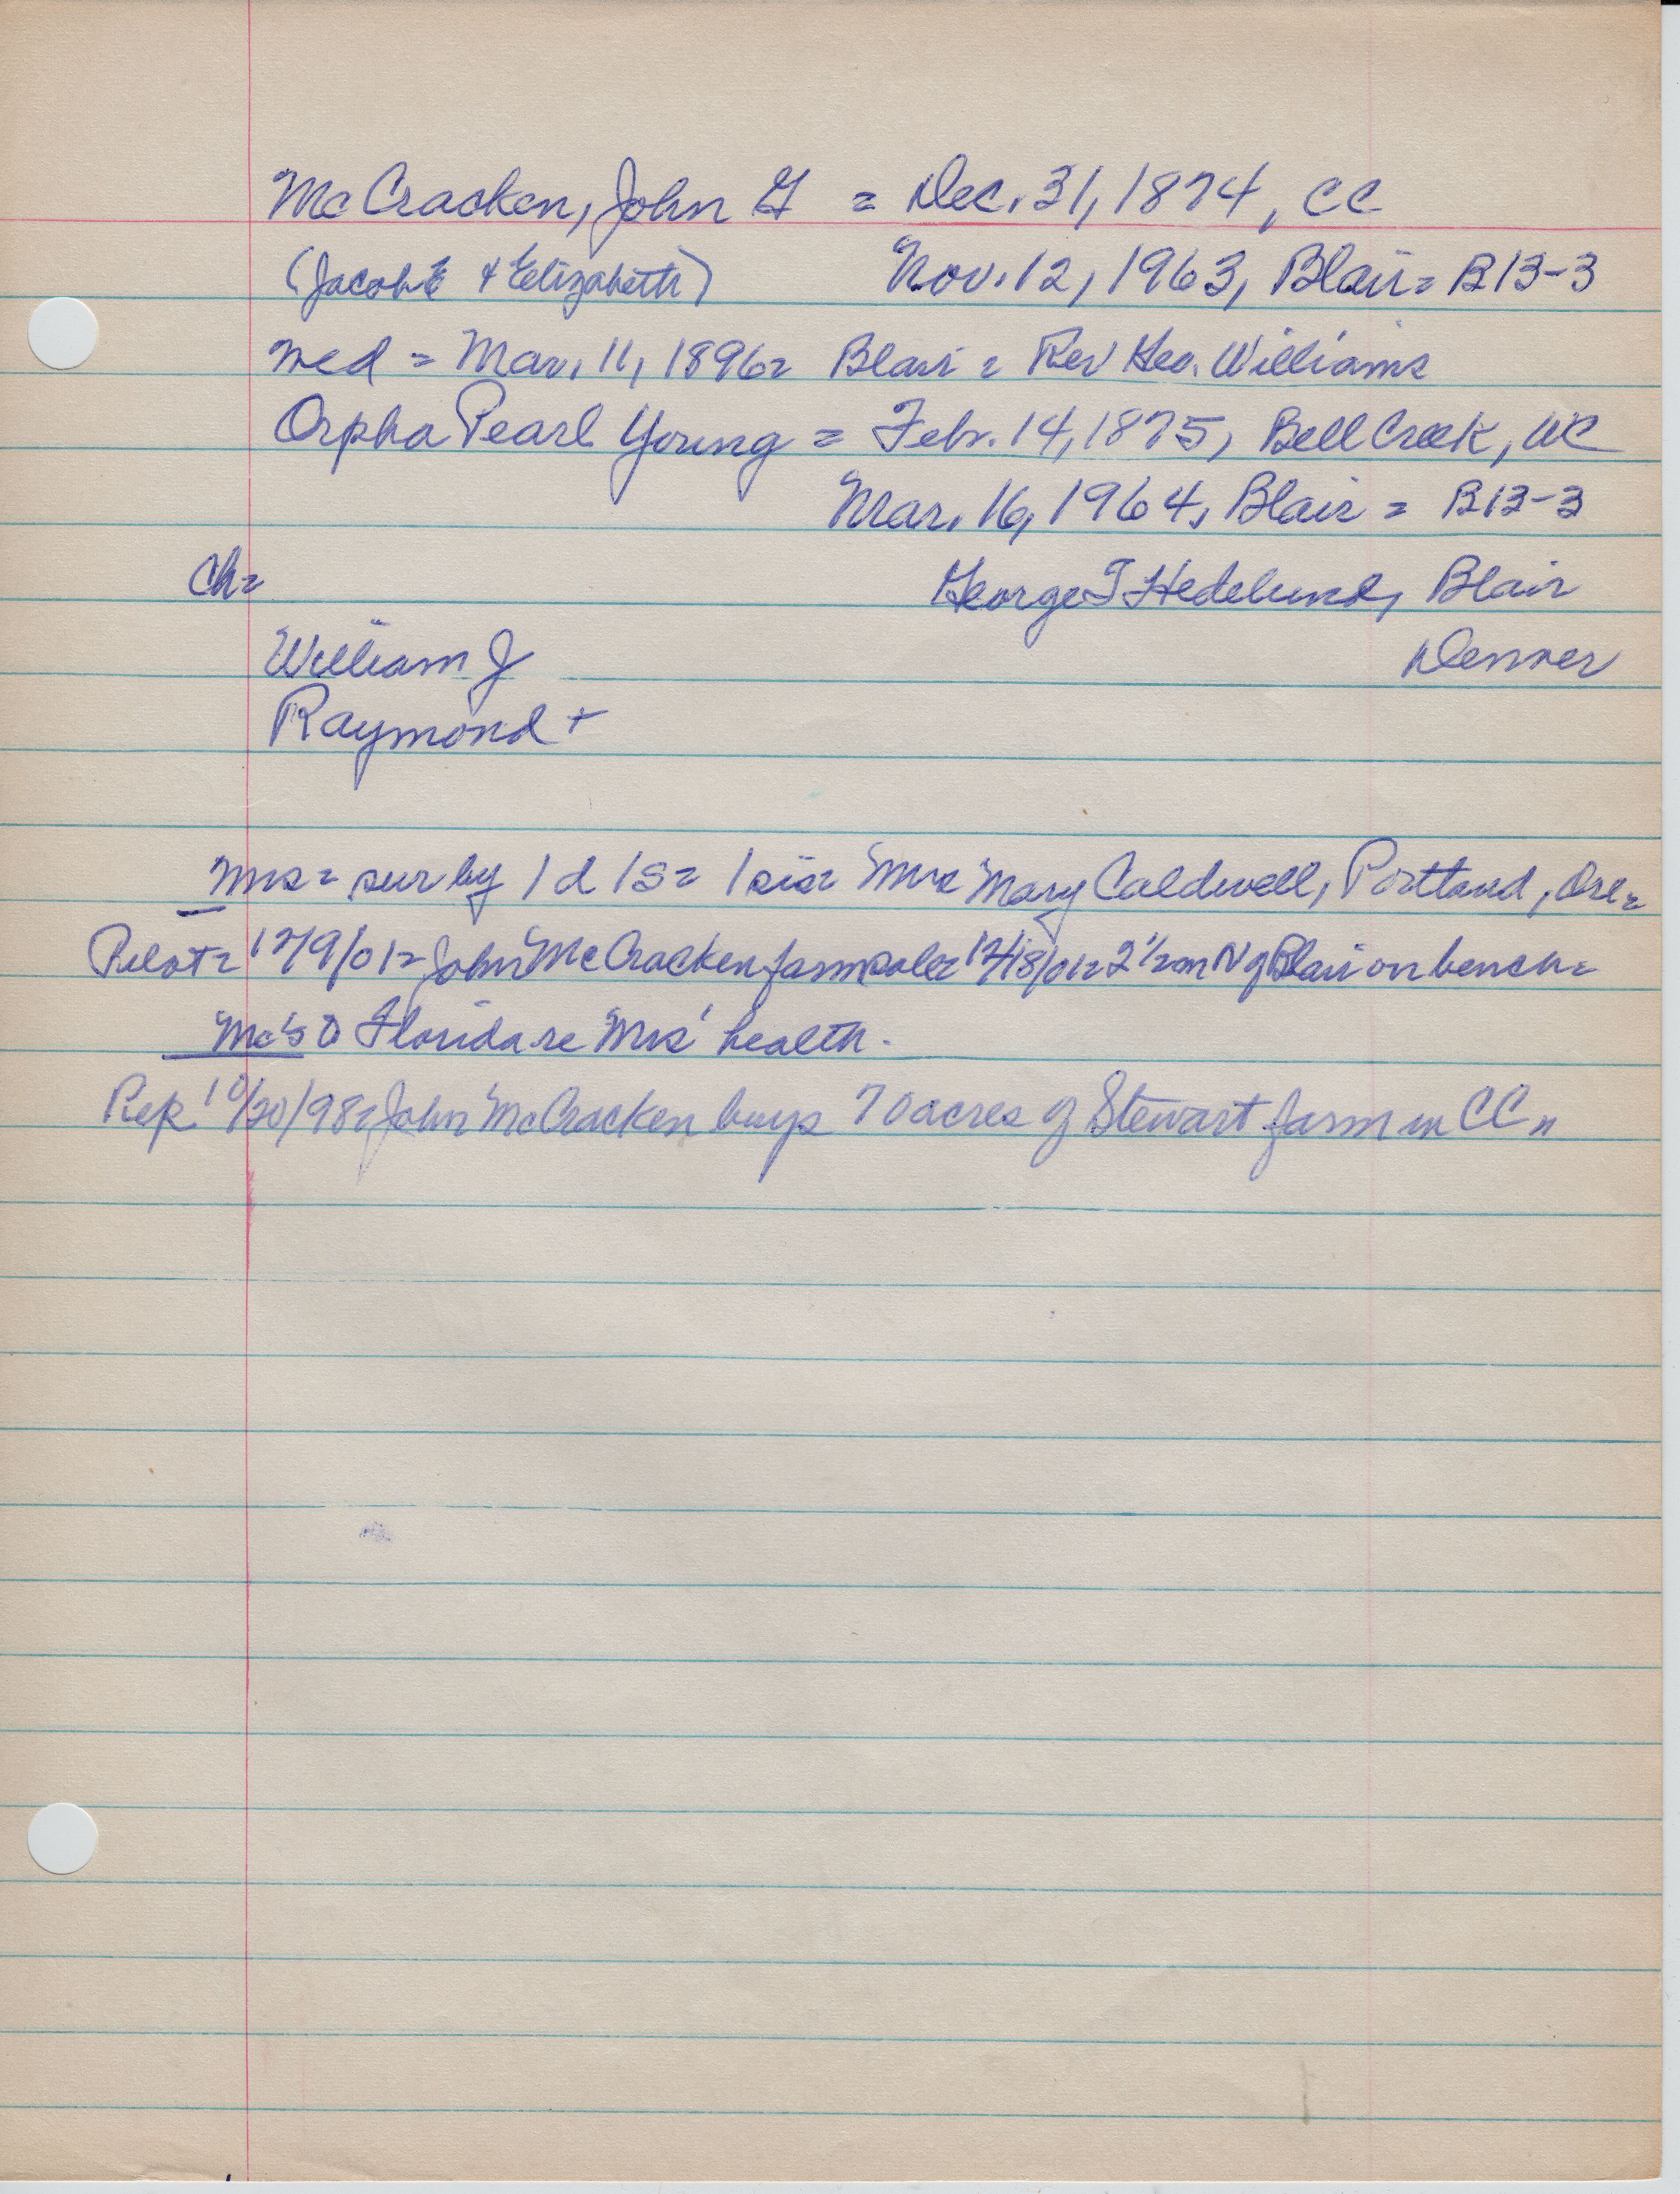 McCracken, John G = Dec. 31, 1874, CC
(Jacob E & Elizabeth) Nov. 12, 1963, Blair = B13-3
med = Mar. 11, 1896 = Blair = Rev Geo. Williams
Orpha Pearl Young = Febr. 14, 1875, Bell Creek, WC
Mar. 16, 1964, Blair = B13-3
Ch= George T Hedelund, Blair
William J Denver
Raymond +
Mrs = sur by 1 d 1 s = 1 sis = Mrs Mary Caldwell, Portland, Ore =
Pilot = 12/19/01 = John McCracken farm sale = 12/18/01 = 2 1/2 m N of Blair on bench =
Mc's to Florida re Mrs' health.
Rep 10/20/98 = John McCracken buys 70 acres of Stewart farm in CC =